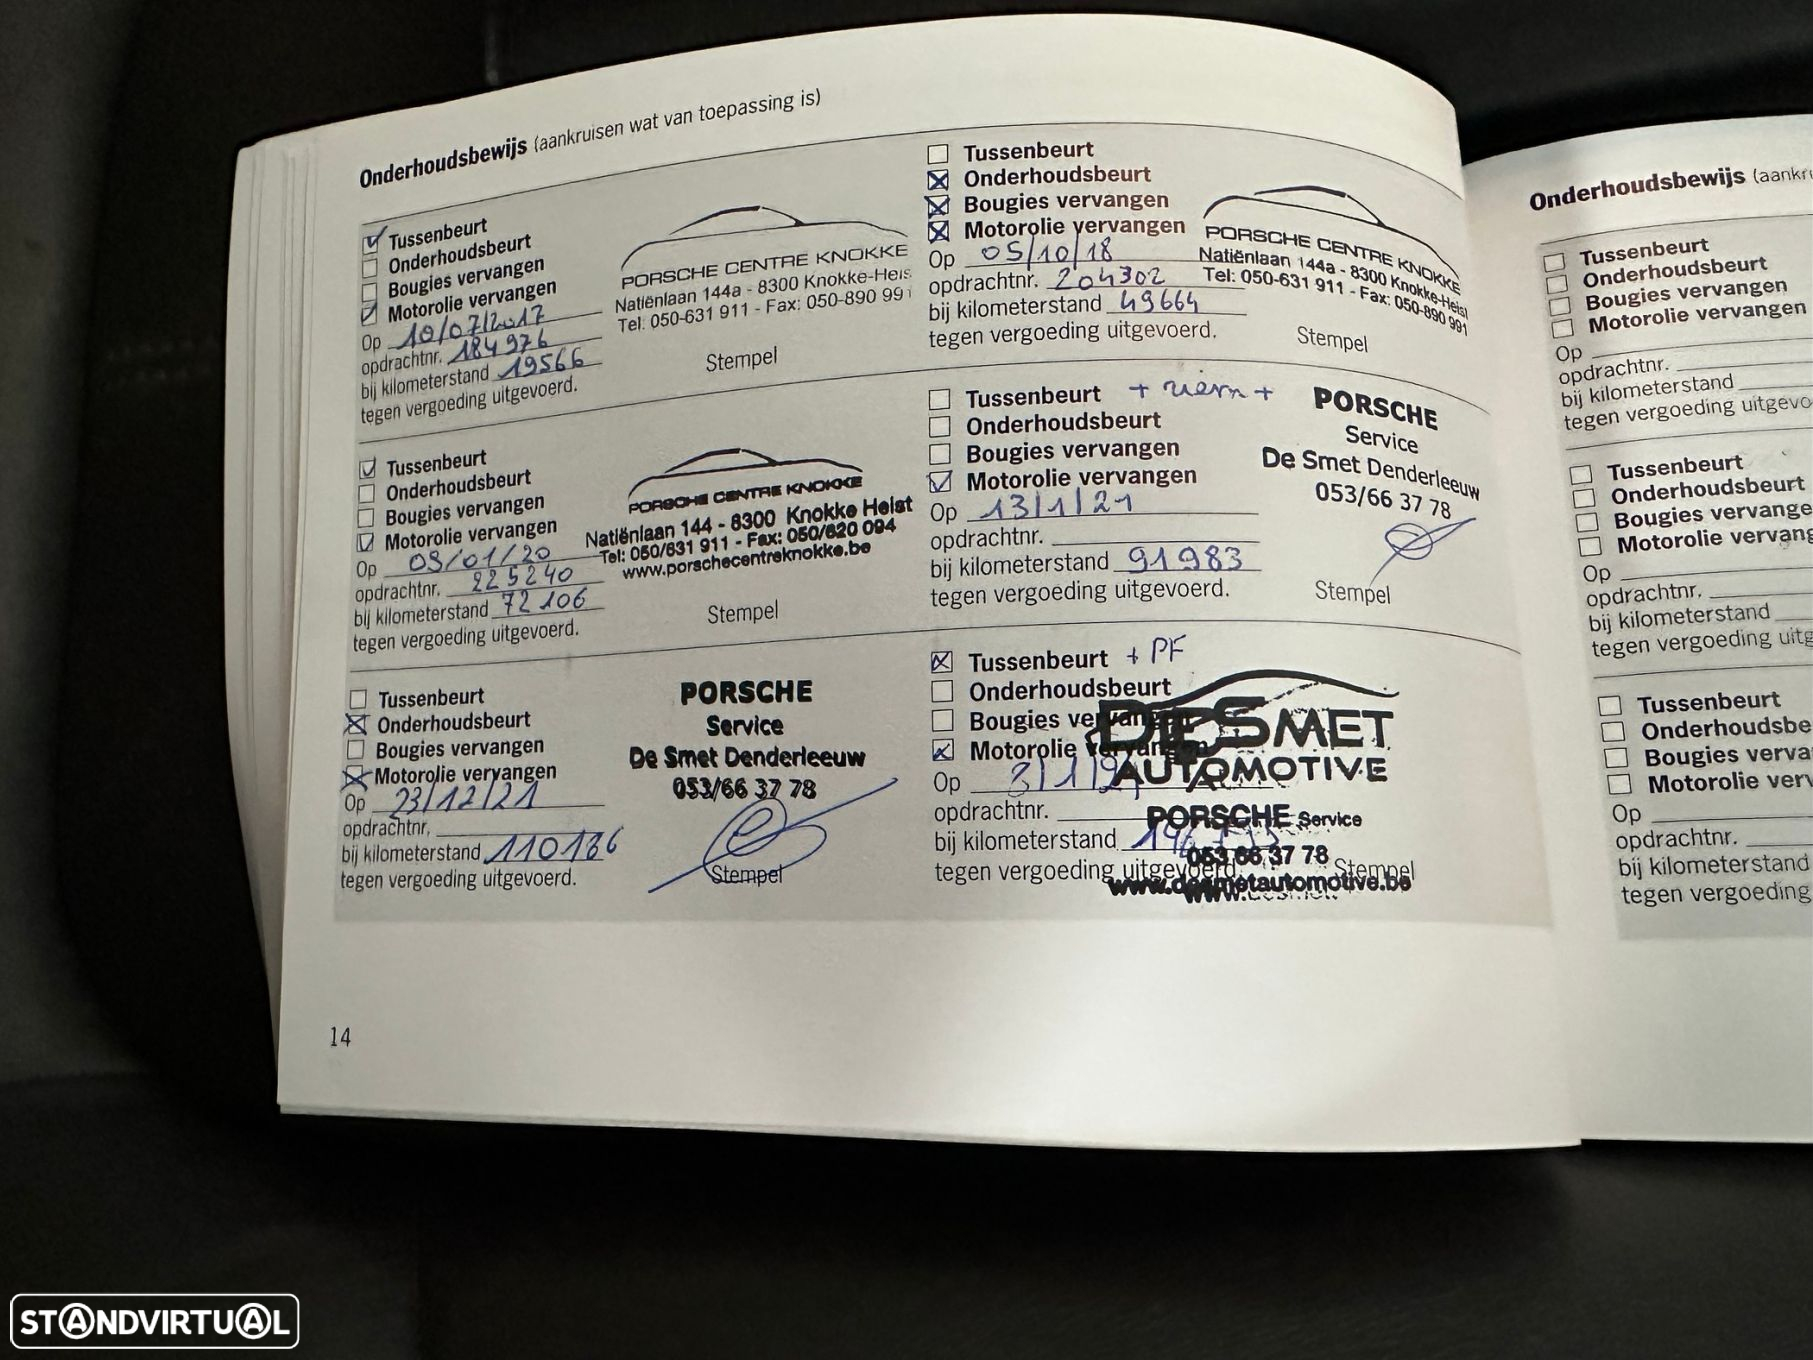 Onderhoudsbewijs (aankruisen wat van toepassing is)
Tussenbeurt
Onderhoudsbeurt
Bougies vervangen
Motorolie vervangen
Op 10/07/2017
opdrachtnr. 184976
bij kilometerstand 19566
tegen vergoeding uitgevoerd.
PORSCHE CENTRE KNOKKE
Natiënlaan 144a - 8300 Knokke-Heis
Tel: 050-631 911 - Fax: 050-890 991
Stempel
Tussenbeurt
Onderhoudsbeurt
Bougies vervangen
Motorolie vervangen
Op 05/10/18
opdrachtnr. 204302
bij kilometerstand 49664
tegen vergoeding uitgevoerd.
PORSCHE CENTRE KNOKKE
Natiënlaan 144a - 8300 Knokke-Heist
Tel: 050-631 911 - Fax: 050-890 991
Stempel
Tussenbeurt
Onderhoudsbeurt
Bougies vervangen
Motorolie vervangen
Op 09/01/20
opdrachtnr. 225240
bij kilometerstand 72106
tegen vergoeding uitgevoerd.
PORSCHE CENTRE KNOKKE
Natiënlaan 144 - 8300 Knokke Heist
Tel: 050/631 911 - Fax: 050/620 094
www.porschecentreknokke.be
Stempel
Tussenbeurt + +
Onderhoudsbeurt
Bougies vervangen
Motorolie vervangen
Op 13/1/21
opdrachtnr.
bij kilometerstand 91983
tegen vergoeding uitgevoerd.
PORSCHE
Service
De Smet Denderleeuw
053/66 37 78
Stempel
Tussenbeurt
Onderhoudsbeurt
Bougies vervangen
Motorolie vervangen
Op 23/12/21
opdrachtnr.
bij kilometerstand 110186
tegen vergoeding uitgevoerd.
PORSCHE
Service
De Smet Denderleeuw
053/66 37 78
Stempel
Tussenbeurt + PF
Onderhoudsbeurt
Bougies vervangen
Motorolie vervangen
Op
opdrachtnr.
bij kilometerstand
tegen vergoeding uitgevoerd.
DESMET
AUTOMOTIVE
PORSCHE Service
053 66 37 78
www.desmetautomotive.be
Stempel
14
Onderhoudsbewijs (aankru
Tussenbeurt
Onderhoudsbeurt
Bougies vervangen
Motorolie vervangen
Op
opdrachtnr.
bij kilometerstand
tegen vergoeding uitgevo
Tussenbeurt
Onderhoudsbeurt
Bougies vervange
Motorolie vervang
Op
opdrachtnr.
bij kilometerstand
tegen vergoeding uitg
Tussenbeurt
Onderhoudsbe
Bougies verva
Motorolie verv
Op
opdrachtnr.
bij kilometerstand
tegen vergoeding
STANDVIRTUAL